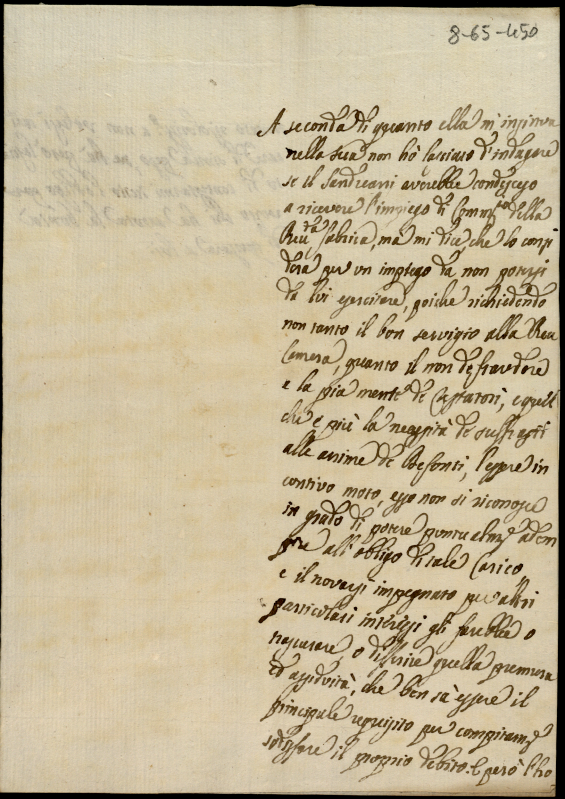 8-65-450
A seconda di quanto ella m'insinua
nella sua non hò lasciato d'indagare
se il Sendreani averebbe condisceso
a ricevere l'impiego di Comm.rio della
Reu.da Fabrica, mà mi dice, che lo consi
dera per un impiego dà non potersi
dà lui esercitare, poiche richiedendo
non tanto il bon servigio alla Reu
Camera, quanto il non defraudare
e la pia mente de Testatori, e quel
che e più la necessità de suffragij
alle anime de Defonti, l'essere in
continvo moto, esso non si riconosce
in grado di potere puntualm.e adem
pire all'obligo di tale Carico
e il trovarsi impegnato per altri
particolari interessi gli farebbe o
trascurare, o differire quella premura
ed assiduità, che ben sà essere il
principale requisito per compitam.e
sodisfare il proprio debito. E però l'ho